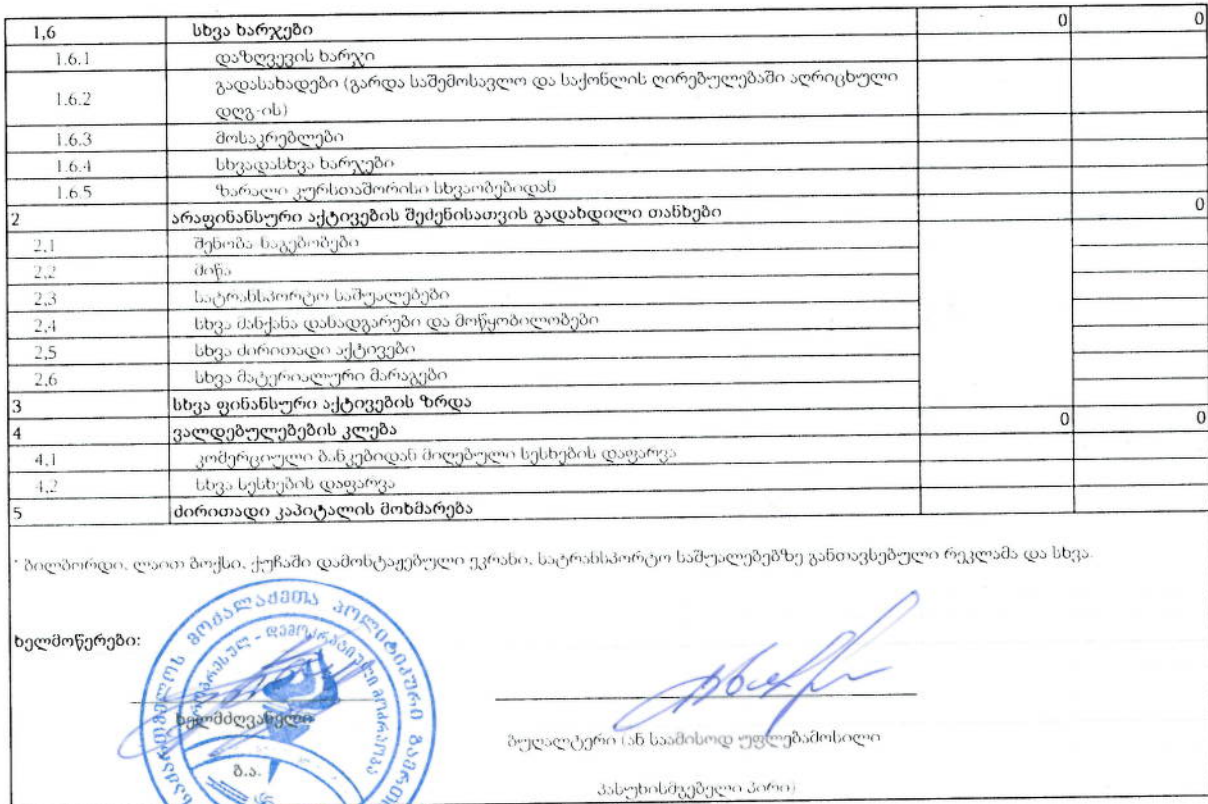 1,6 სხვა ხარჯები 0 0
1.6.1 დაზღვევის ხარჯი
1.6.2 გადასახადები (გარდა საშემოსავლო და საქონლის ღირებულებაში აღრიცხული
დღგ-ის)
1.6.3 მოსაკრებლები
1.6.4 სხვადასხვა ხარჯები
1.6.5 ზარალი კურსთაშორისი სხვაობებიდან
2 არაფინანსური აქტივების შეძენისათვის გადახდილი თანხები 0
2,1 შენობა ნაგებობები
2,2 მიწა
2,3 სატრანსპორტო საშუალებები
2,4 სხვა მანქანა დასადგარები და მოწყობილობები
2,5 სხვა ძირითადი აქტივები
2,6 სხვა მატერიალური მარაგები
3 სხვა ფინანსური აქტივების ზრდა
4 ვალდებულებების კლება 0 0
4,1 კომერციული ბანკებიდან მიღებული სესხების დაფარვა
4,2 სხვა სესხების დაფარვა
5 ძირითადი კაპიტალის მოხმარება
* ბილბორდი, ლაით ბოქსი, ქუჩაში დამონტაჟებული ეკრანი, სატრანსპორტო საშუალებებზე განთავსებული რეკლამა და სხვა.
მოქალაქეთა პოლიტიკური
დემოკრატიული მოძრაობა
ხელმოწერები:
ხელმძღვანელი
ბ.ა.
ბუღალტერი (ან საამისოდ უფლებამოსილი
პასუხისმგებელი პირი)